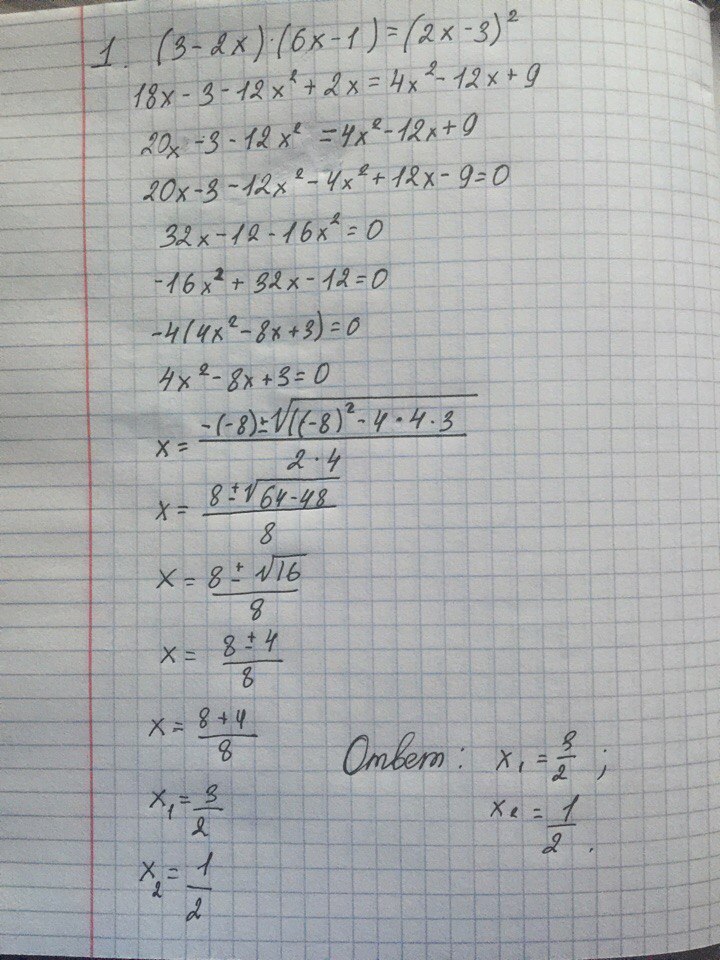 1. (3-2x)·(6x-1)=(2x-3)²
18x-3-12x²+2x=4x²-12x+9
20x-3-12x²=4x²-12x+9
20x-3-12x²-4x²+12x-9=0
32x-12-16x²=0
-16x²+32x-12=0
-4(4x²-8x+3)=0
4x²-8x+3=0
x=(-(-8)±√((-8)²-4·4·3))/(2·4)
x=(8±√(64-48))/8
x=(8±√16)/8
x=(8±4)/8
x=(8+4)/8
x₁=3/2
x₂=1/2
Ответ: x₁=3/2;
x₂=1/2.